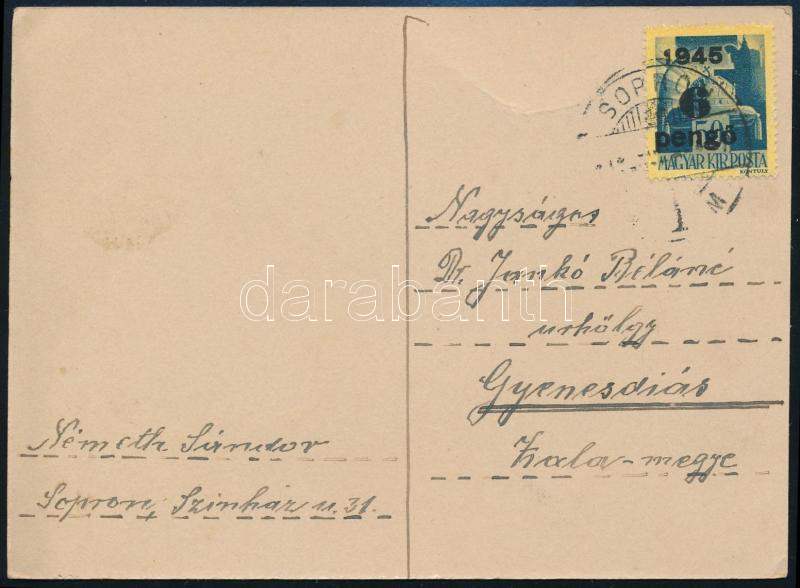 1945
6
pengő
MAGYAR KIR. POSTA
KONTULY
SOPRON
M
Nagyságos
Dr. Jankó Béláné
urhölgy
Gyenesdiás
Zala-megye
Németh Sándor
Sopron, Szinház u. 31.
darabanth